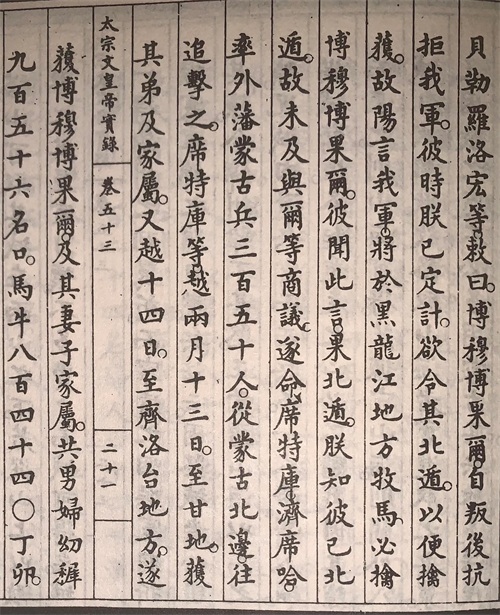 貝勒羅洛宏等敕曰。博穆博果爾。自叛後抗
拒我軍。彼時朕已定計。欲令其北遁。以便擒
獲。故陽言我軍。將於黑龍江地方牧馬。必擒
博穆博果爾。彼聞此言。果北遁。朕知彼已北
遁。故未及與爾等商議。遂命席特庫。濟席哈。
率外藩蒙古兵三百五十人。從蒙古北邊往
追擊之。席特庫等。越兩月十三日。至甘地。獲
其弟及家屬。又越十四日。至齊洛台地方。遂
太宗文皇帝實錄 卷五十三 二十一
獲博穆博果爾。及其妻子家屬。共男婦幼稺
九百五十六名口。馬牛八百四十四〇丁卯。